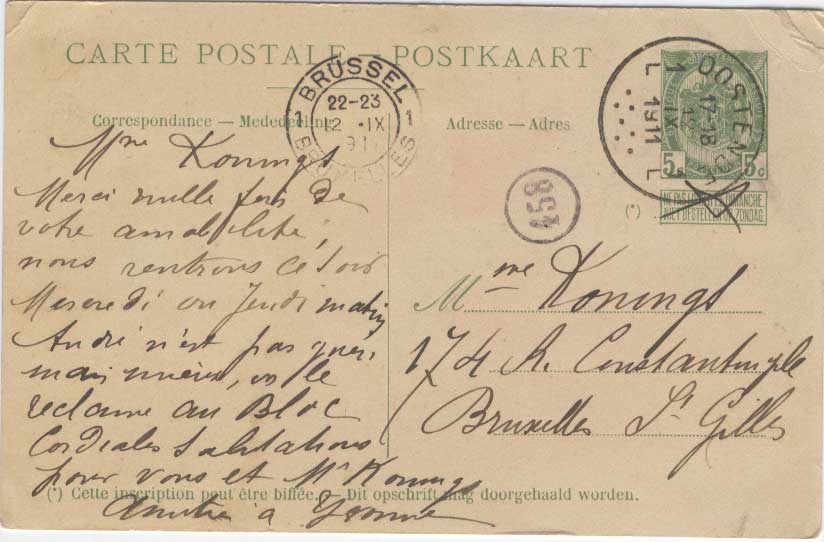 CARTE POSTALE — POSTKAART
Correspondance — Mededeeling
Adresse — Adres
BRÜSSEL
1 1
22-23
12 IX
BRUXELLES
OOSTENDE
17-18
IX
1911
1 L L
5c 5c
NE PAS LIVRER LE DIMANCHE
NIET BESTELLEN OP ZONDAG
(*)
458
Mme Konings
Merci mille fois de
votre amabilité,
nous rentrons ce soir
Mercredi ou Jeudi matin
André n'est pas guéri
mais mieux, on le
réclame au Bloc
Cordiales Salutations
pour vous et Mr Konings
à Yvonne
Mme Konings
174 R. Constantinople
Bruxelles St Gilles
(*) Cette inscription peut être biffée. — Dit opschrift mag doorgehaald worden.